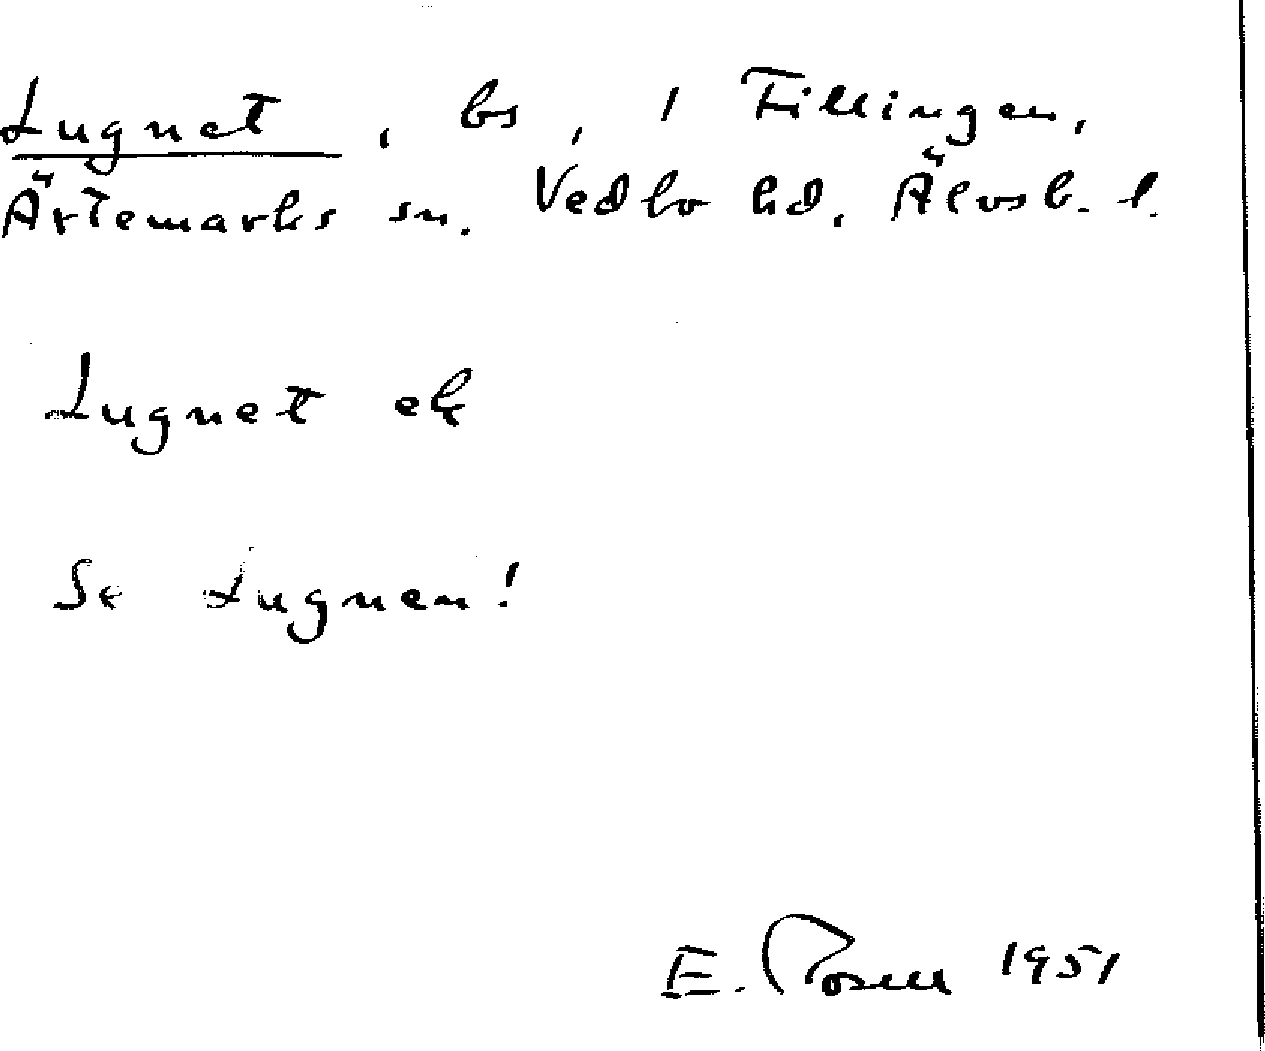 Lugnet, bs, i Fillingen,
Ärtemarks sn. Vedbo hd. Älvsb. l.
Lugnet ek
Se Lugnen!
E. Rosell 1951